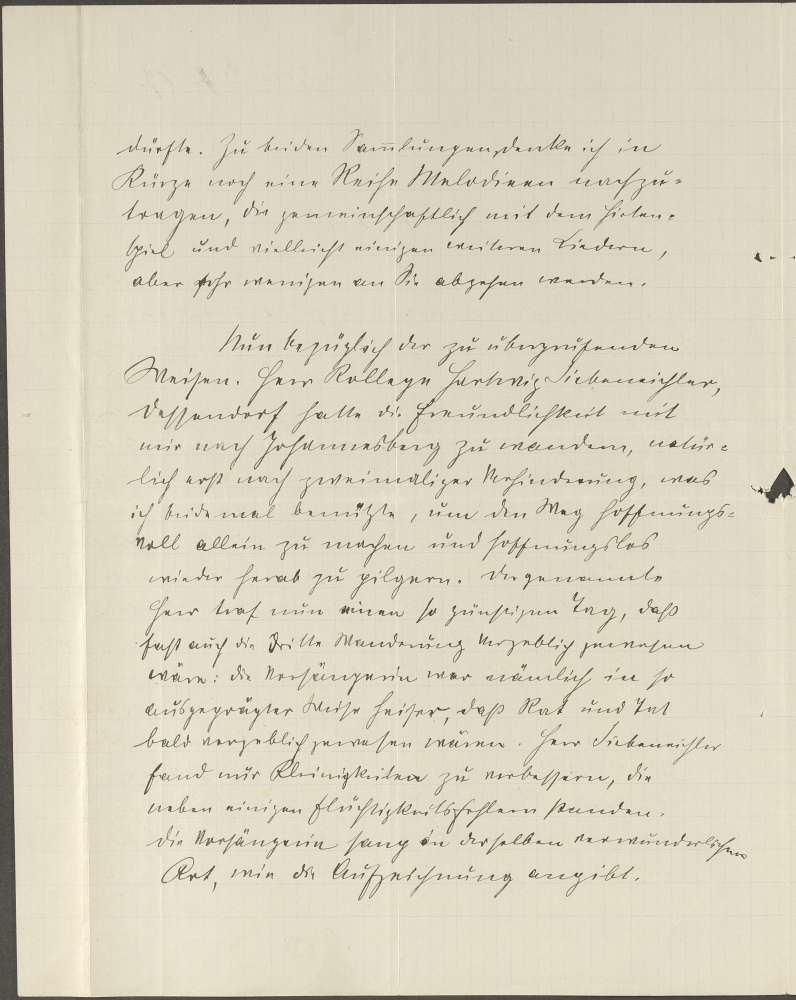 dürfte. Zu beiden Sam̅lungen, denke ich in
Kürze noch eine Reihe Melodieen nachzu-
tragen, die gemeinschaftlich mit dem Hirten-
spiel und vielleicht einigen weiteren Liedern,
aber sehr wenigen an Sie abgehen werden.
Nun bezüglich der zu überprüfenden
Weisen. Herr Kollege Hartwig Siebeneichler,
Dessendorf hatte die Freundlichkeit mit
mir nach Johannesberg zu wandern, natür-
lich erst nach zweimaliger Verhinderung, was
ich beide mal benützte, um den Weg hoffnungs-
voll allein zu machen und hoffnungslos
wieder herab zu pilgern. Der genannte
Herr traf nun einen so günstigen Tag, daß
fast auch die dritte Wanderung vergeblich gewesen
wäre: die Vorsängerin war nämlich in so
ausgeprägter Weise heiser, daß Rat und Tat
bald vergeblich gewesen wären. Herr Siebeneichler
fand nur Kleinigkeiten zu verbessern, die
neben einigen Flüchtigkeitsfehlern standen.
Die Vorsängerin sang in derselben verwunderlichen
Art, wie die Aufzeichnung angibt.